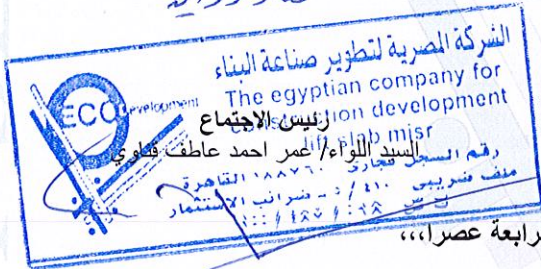 الشركة المصرية لتطوير صناعة البناء
The egyptian company for
development
ECO Development
lift slab misr
رئيس الاجتماع
السيد اللواء/ عمر احمد عاطف قناوي
رقم السجل تجارى ١٨٨٧٦٠ القاهرة
ملف ضريبى ٤١٠ / ٥ - ضرائب الاستثمار
رابعة عصرا،،،